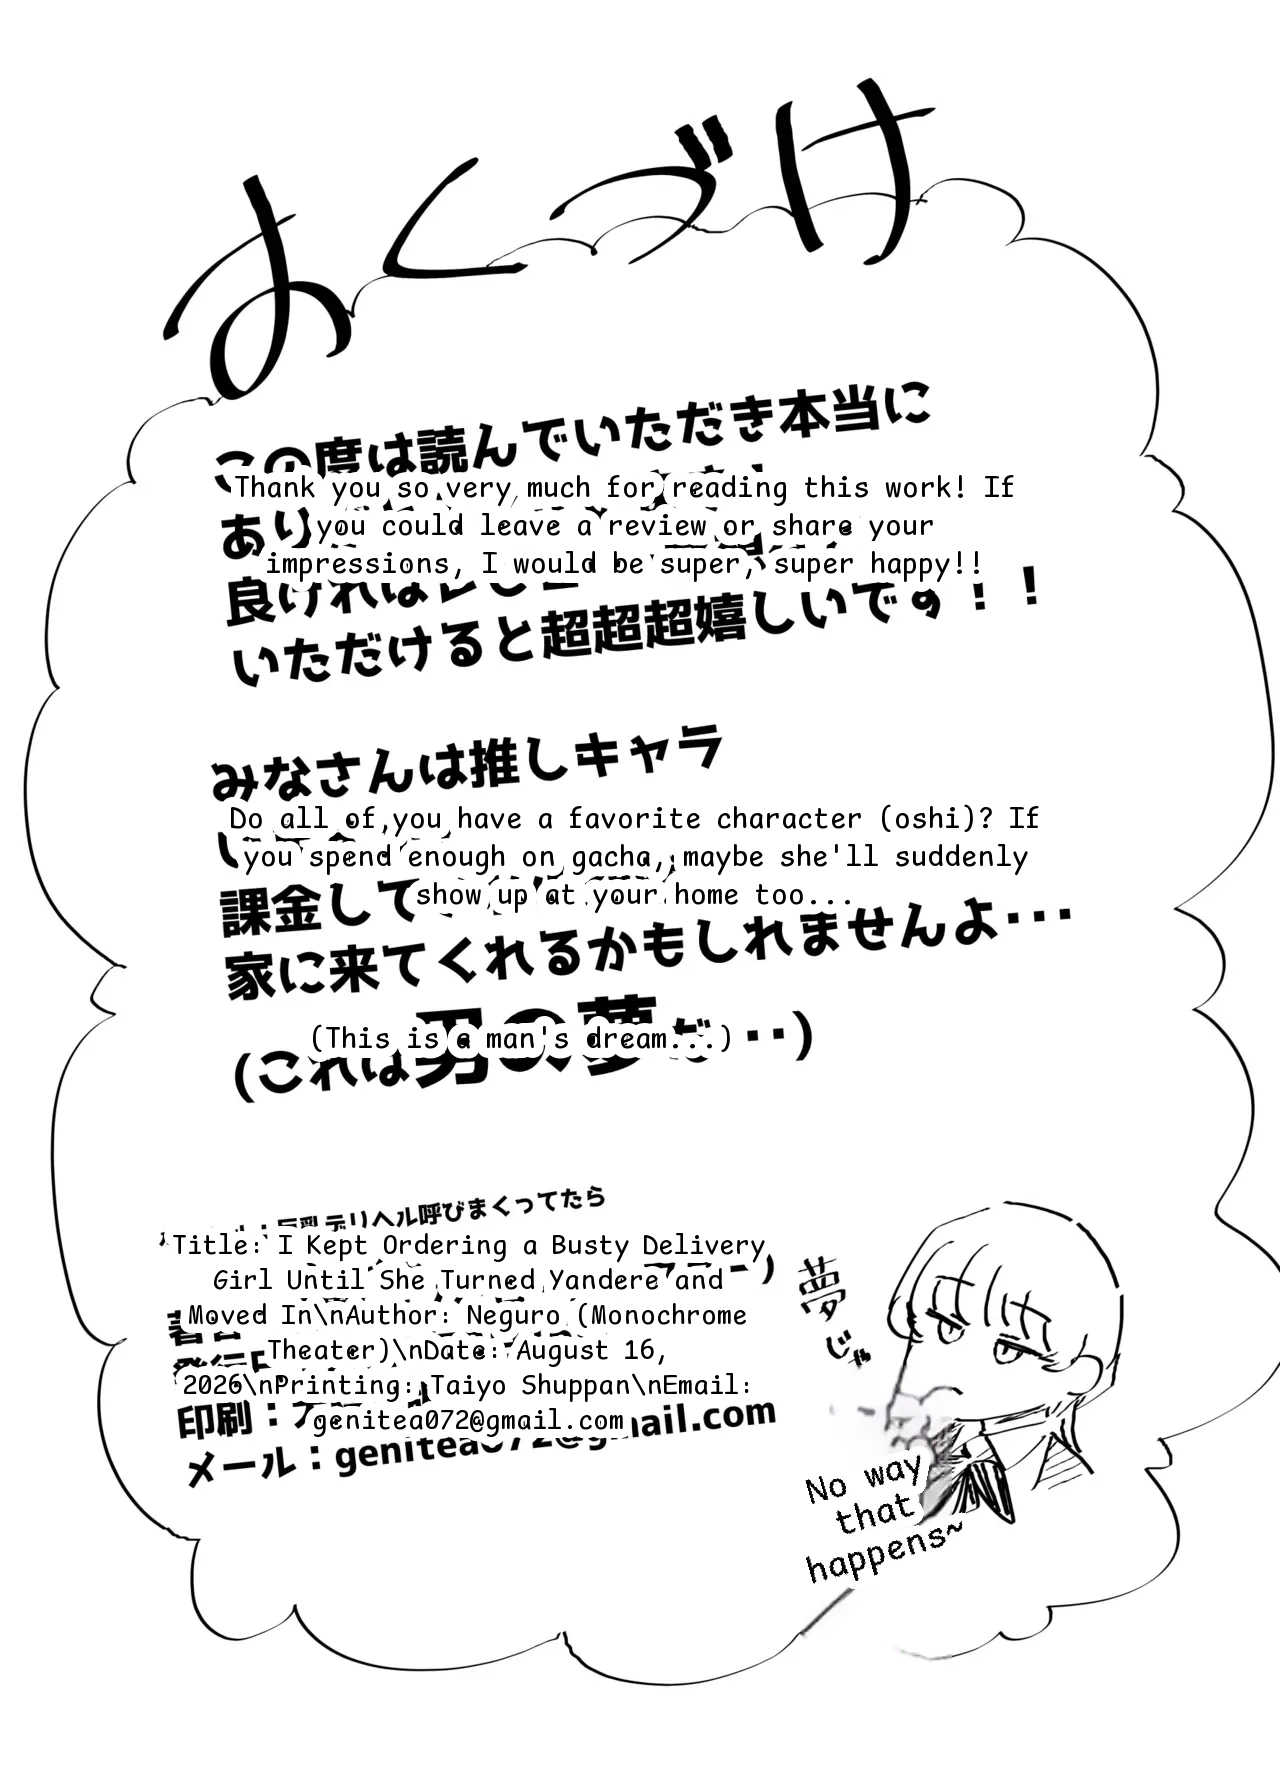 おくづけ
この度は読んでいただき本当に
Thank you so very much for reading this work! If
あり
you could leave a review or share your
impressions, I would be super, super happy!!
良ければレビュー
いただけると超超超嬉しいです！！
みなさんは推しキャラ
Do all of you have a favorite character (oshi)? If
you spend enough on gacha, maybe she'll suddenly
show up at your home too...
課金して
家に来てくれるかもしれませんよ･･･
(This is a man's dream...)
(これは男の夢だ･･)
：巨乳デリヘル呼びまくってたら
Title: I Kept Ordering a Busty Delivery
Girl Until She Turned Yandere and
Moved In\nAuthor: Neguro (Monochrome
Theater)\nDate: August 16,
2026\nPrinting: Taiyo Shuppan\nEmail:
genitea072@gmail.com
印刷：
メール：genitea072@gmail.com
夢
じゃ
No way
that
happens~